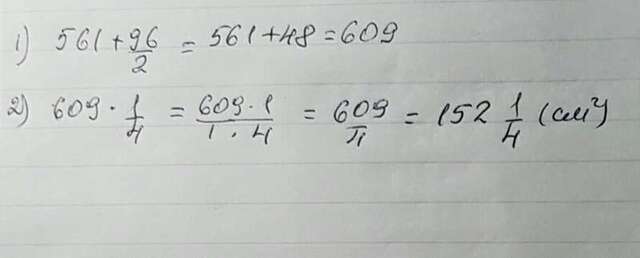 1) 561 + 96/2 = 561 + 48 = 609
2) 609 · 1/4 = 609 · 1/1 · 4 = 609/л = 152 1/4 (см²)